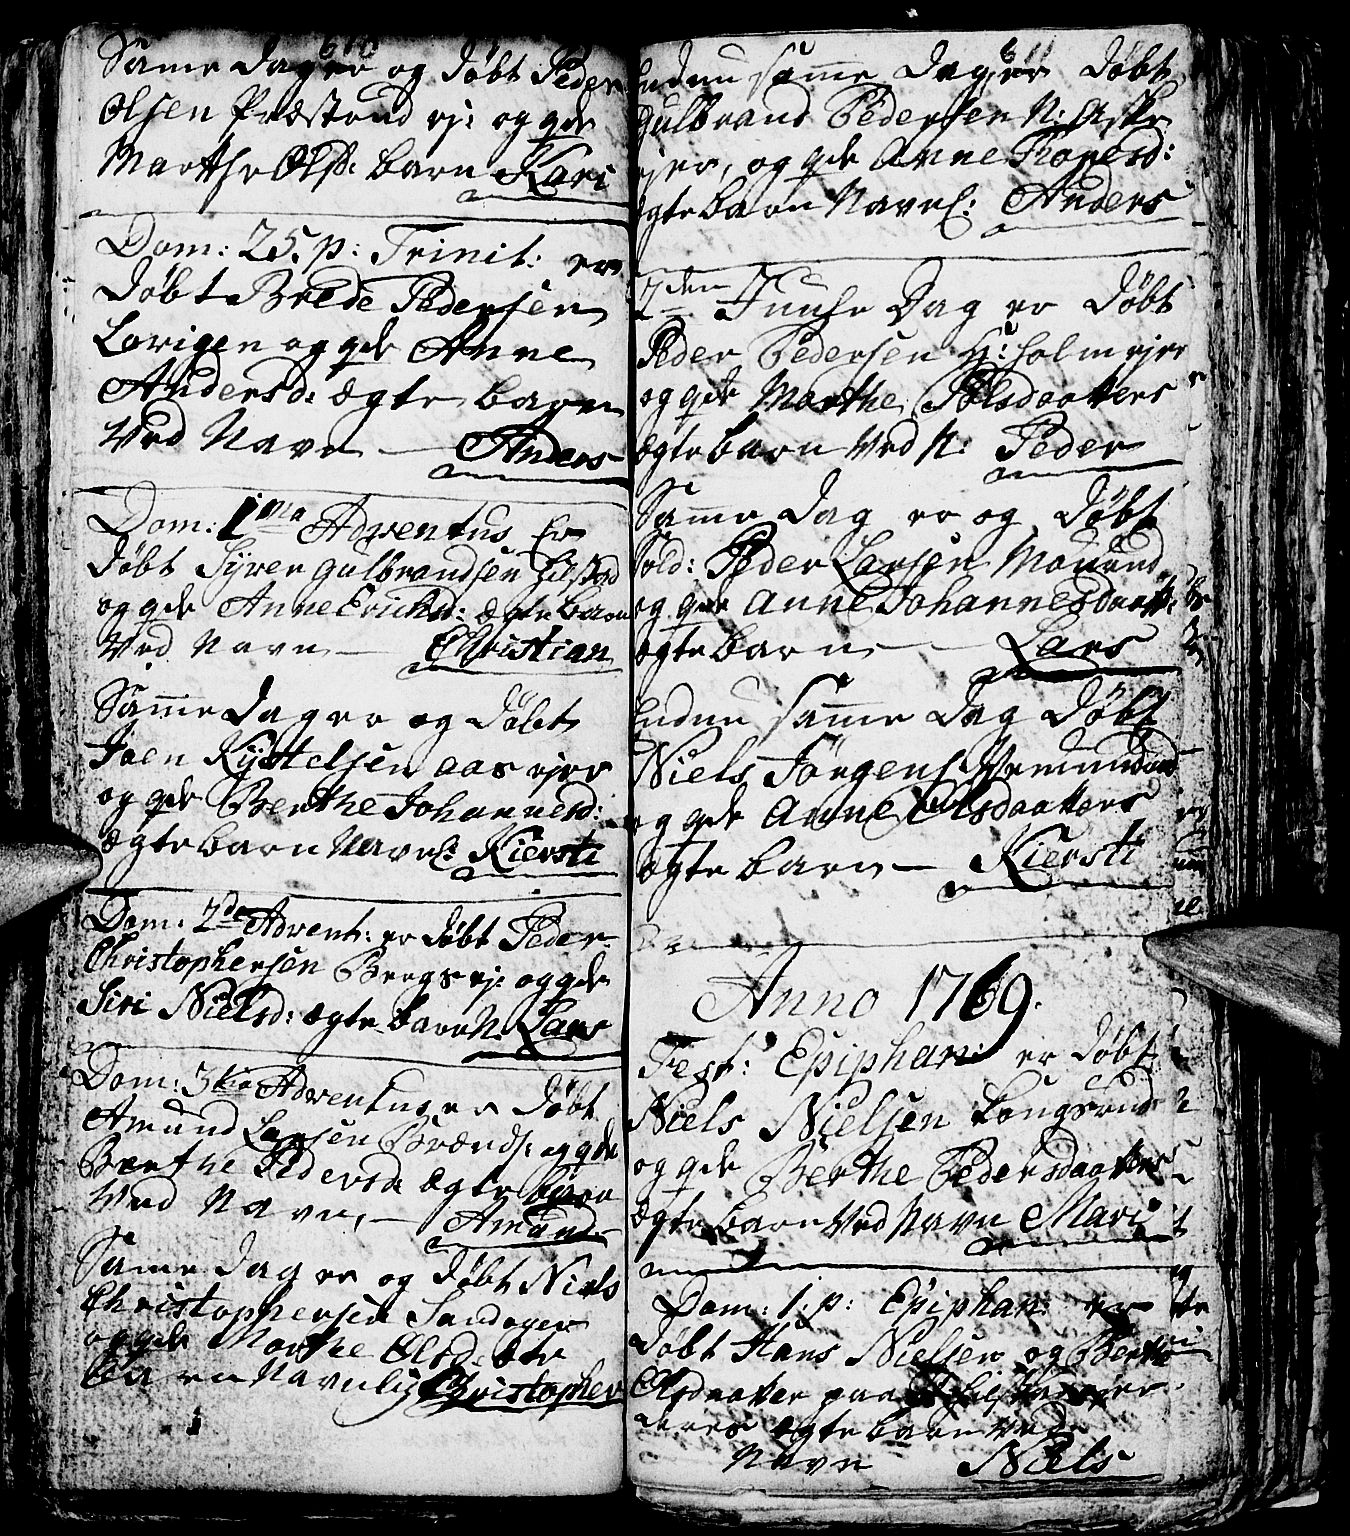 610
Samme Dag er og døbt Peder
Olsen Præstrud ej: og qde
Marthe Olsd: barn Kari
Dom: 25. p: Trinit: er
døbt Brede Pedersen
og qde Anne
Andersd: ægte barn
Ved Navn — Anders
Dom: 1ma Adventus Er
døbt Syver Gulbrandsen
og qde Anne Erichsd: ægte barn
Ved Navn — Christian
Samme Dag er og døbt
Joen Kystelsen Aas ejer
og qde Berthe Johannesd:
ægte barn Navnl: Kiersti
Dom: 2da Advent: er døbt Peder
Christophersen Bergs ej: og qde
Siri Nielsd: ægte barn N: Lars
Dom: 3tia Adventus er døbt
Amund Larsen og qde
Berthe Pedersd ægte barn
Ved Navn, — Amund
Samme Dag er og døbt Niels
Christophersen Sandager
og qde Marthe Olsd: ægte
barn Navnlig Christopher
611
Endnu samme Dag er døbt
Gulbrand Pedersen N:
ejer, og qde Anne
ægte barn Navnl: Anders
2den Juule Dag er døbt
Peder Pedersen H: holm ejer
og qde Marthe Polsdaatters
ægte barn Ved N: Peder
Samme Dag er og døbt
Sold: Peder Larsen
og qde Anne Johannesdaatt:
ægte barn — Lars
Endnu samme Dag døbt
Niels Jørgens:
og qde Anne Olsdaatters
ægte barn — Kiersti
Anno 1769.
Fest: Epiphan: er døbt
Niels Nielsen
og qde Berthe Pedersdaatters
ægte barn Ved Navn Mari
Dom: 1. p: Epiphan: er
døbt Hans Nielsen og Berthe
Olsdaatter paa
deres ægte barn Ved
Navn Niels